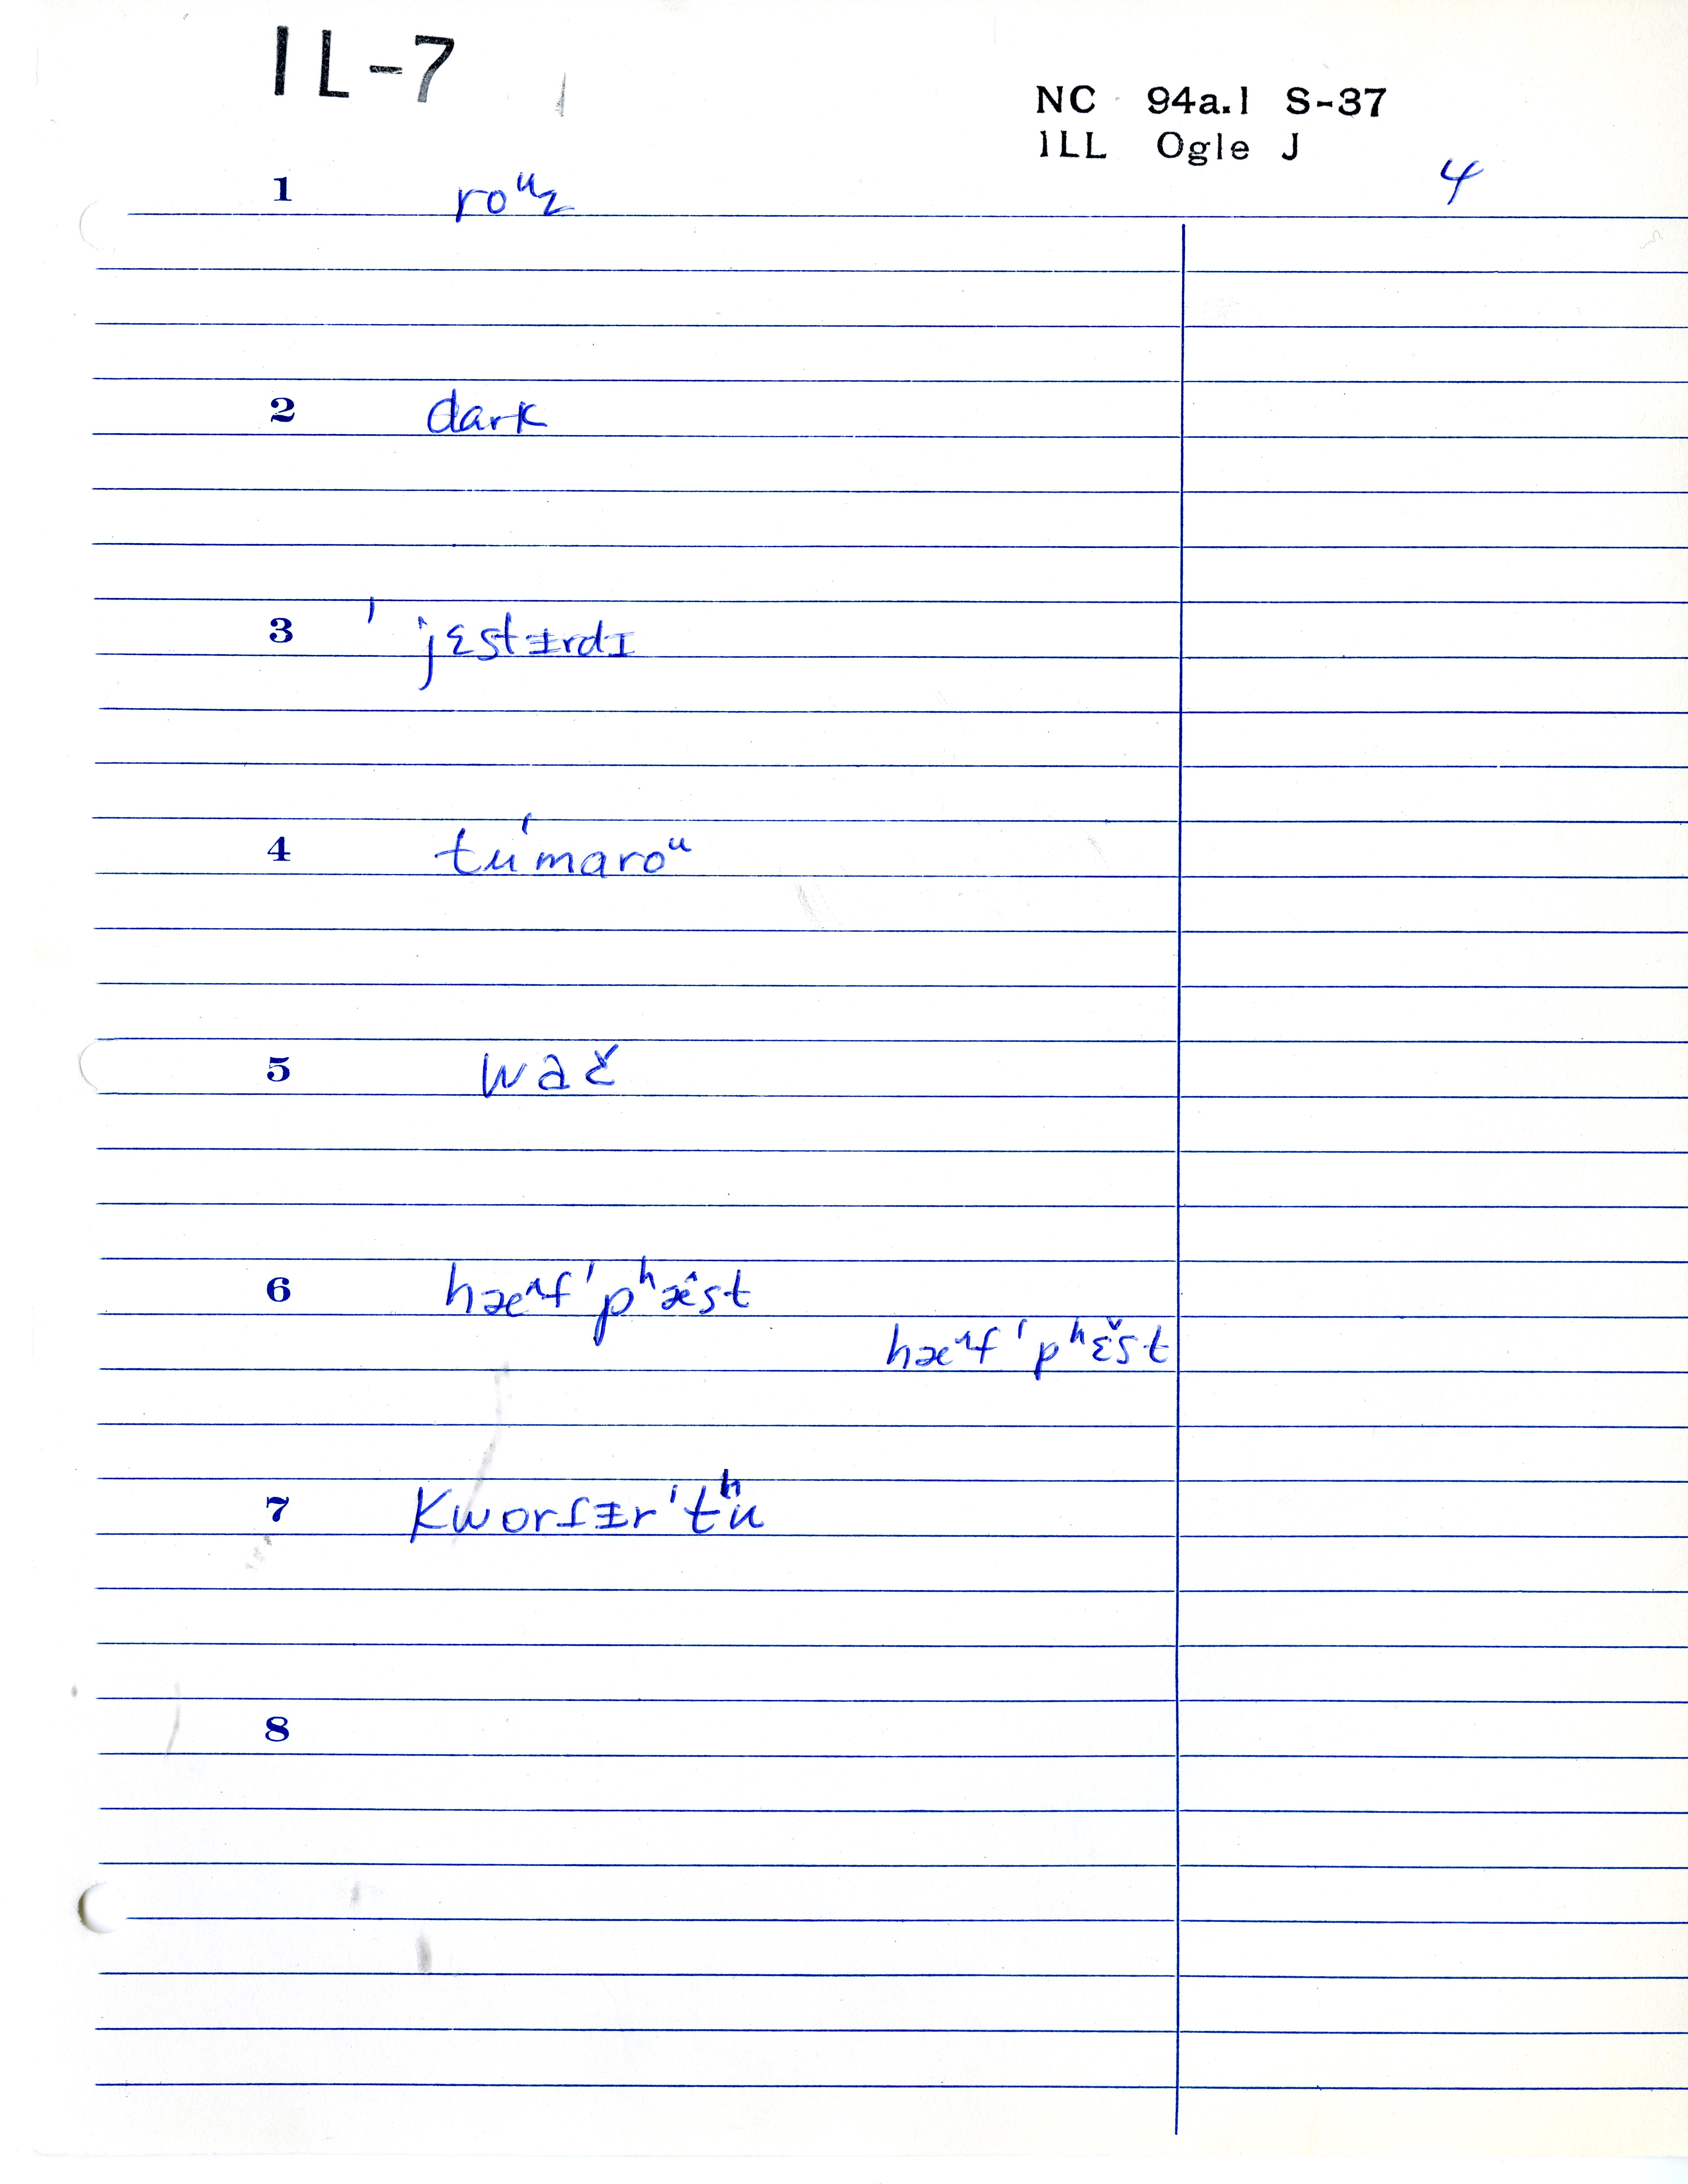 IL-7
NC 94a.1 S-37
ILL Ogle J
4
1 roᵘz
2 dark
3 ˈjɛstɨrdɪ
4 tuˈmaroᵘ
5 wač
6 hæᶺfˈpʰæ̂st
hæᶺfˈpʰɛ̌st
7 Kworʃɨrˈtʰu
8